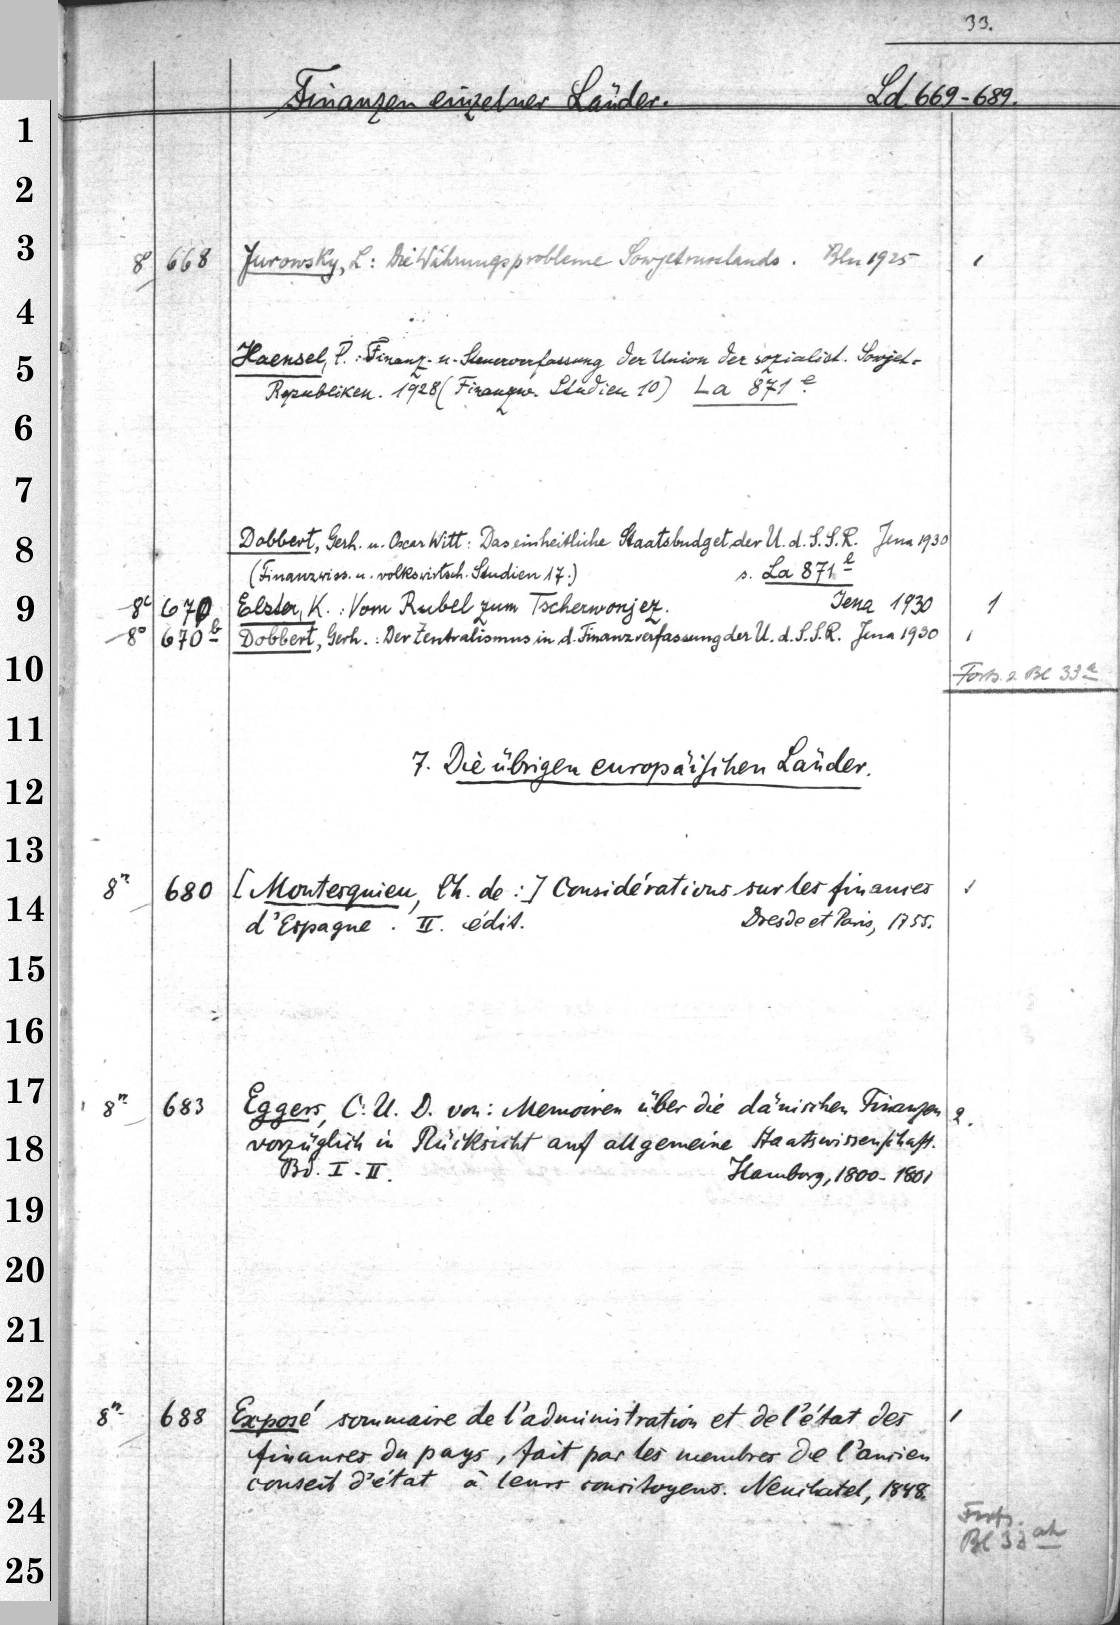 33.
Finanzen einzelner Länder. Ld 669-689.
1
2
3
8° 668 Jurowsky, L: Die Währungsprobleme Sowjetrusslands. Bln 1925 1
4
Haensel, P.: Finanz- u. Steuerverfassung der Union der sozialist. Sowjet-
5
Republiken. 1928 (Finanzw. Studien 10) La 871 e
6
7
8 Dobbert, Gerh. u. Oscar Witt: Das einheitliche Staatsbudget der U.d.S.S.R. Jena 1930
(Finanzwiss. u. volkswirtsch. Studien 17.) s. La 871 l
9 8° 670 Elster, K.: Vom Rubel zum Tscherwonjez. Jena 1930 1
8° 670 b Dobbert, Gerh.: Der Zentralismus in d. Finanzverfassung der U.d.S.S.R. Jena 1930 1
10 Forts. s. Bl 33 a
11
7. Die übrigen europäischen Länder.
12
13
8° 680 [Montesquieu, Ch. de:] Considérations sur les finances 1
14
d'Espagne. II. édit. Dresde et Paris, 1755.
15
16
17 8° 683 Eggers, C. U. D. von: Memoiren über die dänischen Finanzen 2.
18 vorzüglich in Rücksicht auf allgemeine Staatswissenschaft.
Bd. I-II. Hamburg, 1800-1801
19
20
21
22
8° 688 Exposé sommaire de l'administration et de l'état des 1
23 finances du pays, fait par les membres de l'ancien
conseil d'état à leurs concitoyens. Neuchatel, 1848.
24 Forts.
Bl 33
25